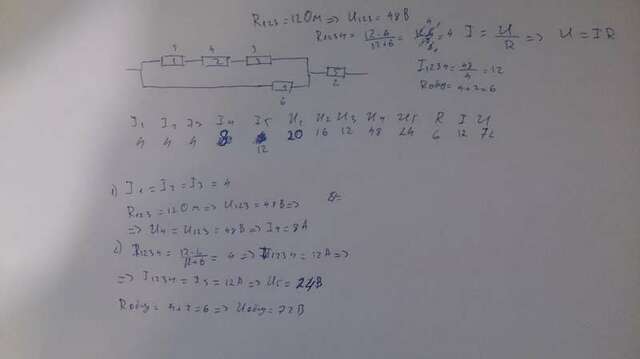 R₁₂₃ = 12 Ом => U₁₂₃ = 48 В
R₁₂₃₄ = 12·6/12+6 = = 4 I = U/R => U = IR
I₁₂₃₄ = 48/4 = 12
Rобщ = 4+2 = 6
5 4 3
1 2 3 5
4 2
6
I₁ I₂ I₃ I₄ I₅ U₁ U₂ U₃ U₄ U₅ R I U
4 4 4 8 12 20 16 12 48 24 6 12 72
1) I₁ = I₂ = I₃ = 4
R₁₂₃ = 12 Ом => U₁₂₃ = 48 В =>
=> U₄ = U₁₂₃ = 48 В => I₄ = 8 А
2) R₁₂₃₄ = 12·6/12+6 = 4 => I₁₂₃₄ = 12 А =>
=> I₁₂₃₄ = I₅ = 12 А => U₅ = 24 В
Rобщ = 4+2 = 6 => Uобщ = 72 В